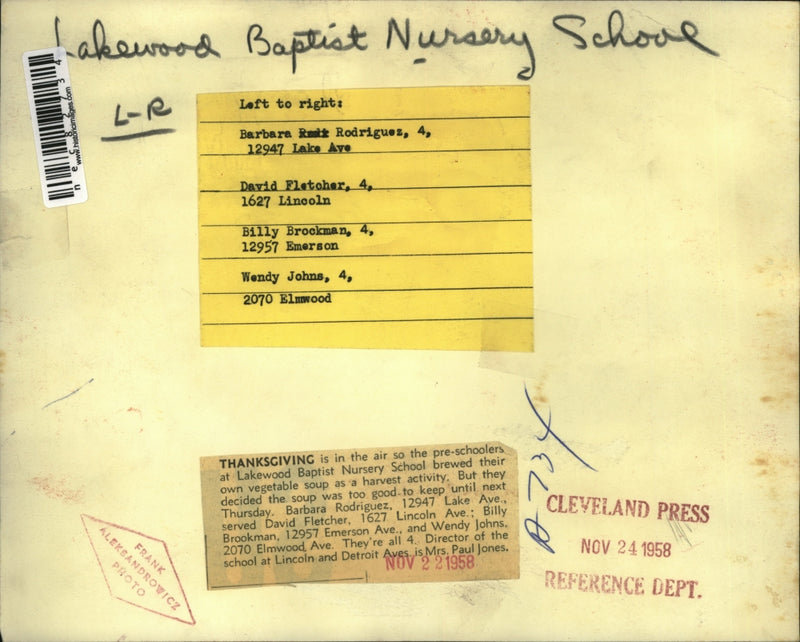 Lakewood Baptist Nursery School
L-R
www.historicimages.com
Left to right:
Barbara Rodriguez, 4,
12947 Lake Ave
David Fletcher, 4,
1627 Lincoln
Billy Brockman, 4,
12957 Emerson
Wendy Johns, 4,
2070 Elmwood
THANKSGIVING is in the air so the pre-schoolers
at Lakewood Baptist Nursery School brewed their
own vegetable soup as a harvest activity. But they
decided the soup was too good to keep until next
Thursday. Barbara Rodriguez, 12947 Lake Ave.,
served David Fletcher, 1627 Lincoln Ave.; Billy
Brookman, 12957 Emerson Ave., and Wendy Johns,
2070 Elmwood Ave. They're all 4. Director of the
school at Lincoln and Detroit Aves. is Mrs. Paul Jones.
NOV 22 1958
A-734
CLEVELAND PRESS
NOV 24 1958
REFERENCE DEPT.
FRANK
ALEKSANDROWICZ
PHOTO